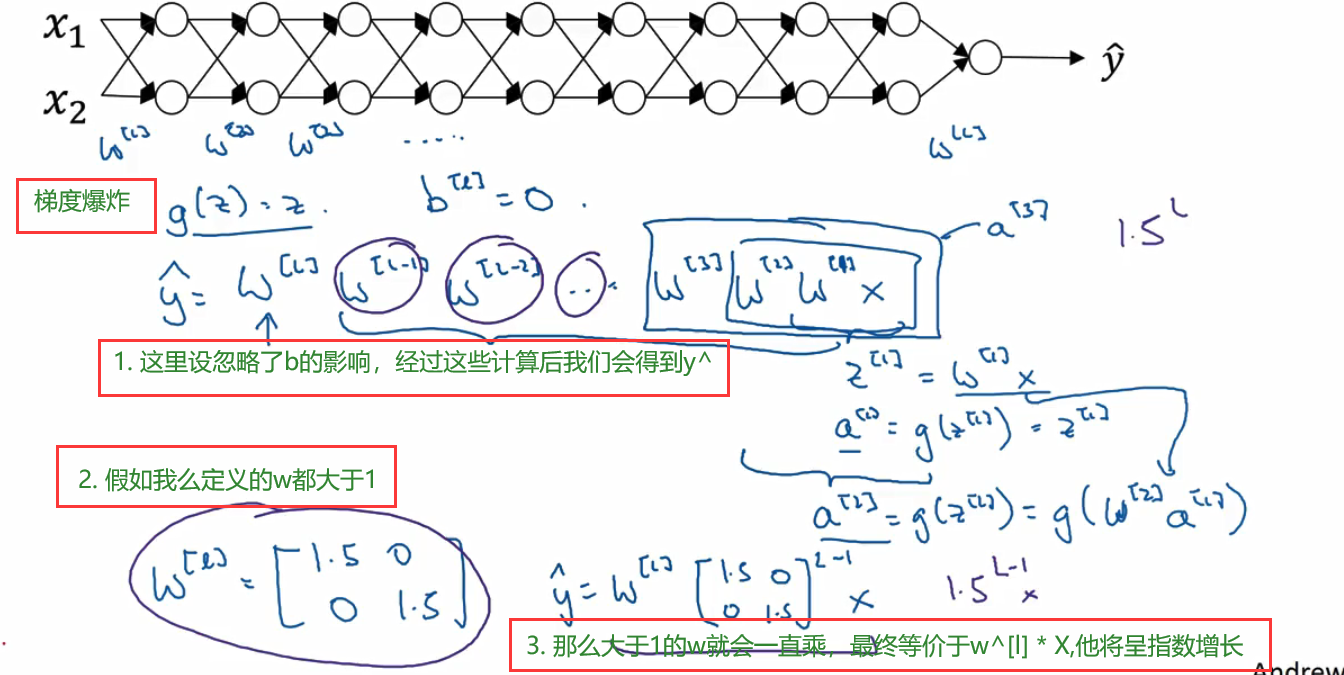 x₁
x₂
ŷ
w^[1] w^[2] w^[3] ..... w^[L]
梯度爆炸
g(z) = z. b^[l] = 0.
a^[3]
1.5^L
ŷ = w^[L] w^[L-1] w^[L-2] ... w^[3] w^[2] w^[1] x
1. 这里设忽略了b的影响，经过这些计算后我们会得到y^
z^[1] = w^[1] x
a^[1] = g(z^[1]) = z^[1]
2. 假如我么定义的w都大于1
a^[2] = g(z^[2]) = g(w^[2] a^[1])
w^[l] = [1.5 0
0 1.5]
ŷ = w^[L] [1.5 0
0 1.5]^L-1 x
1.5^L-1 x
3. 那么大于1的w就会一直乘，最终等价于w^[l] * X,他将呈指数增长
Andrew